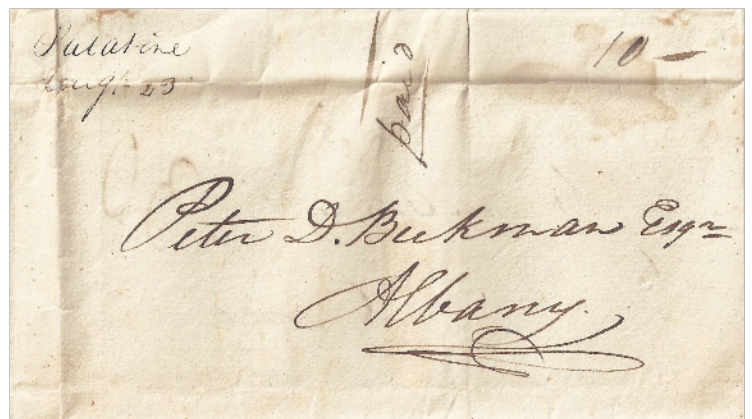 Palatine
Augt 23
paid
10 —
Peter D. Beekman Esqr
Albany.